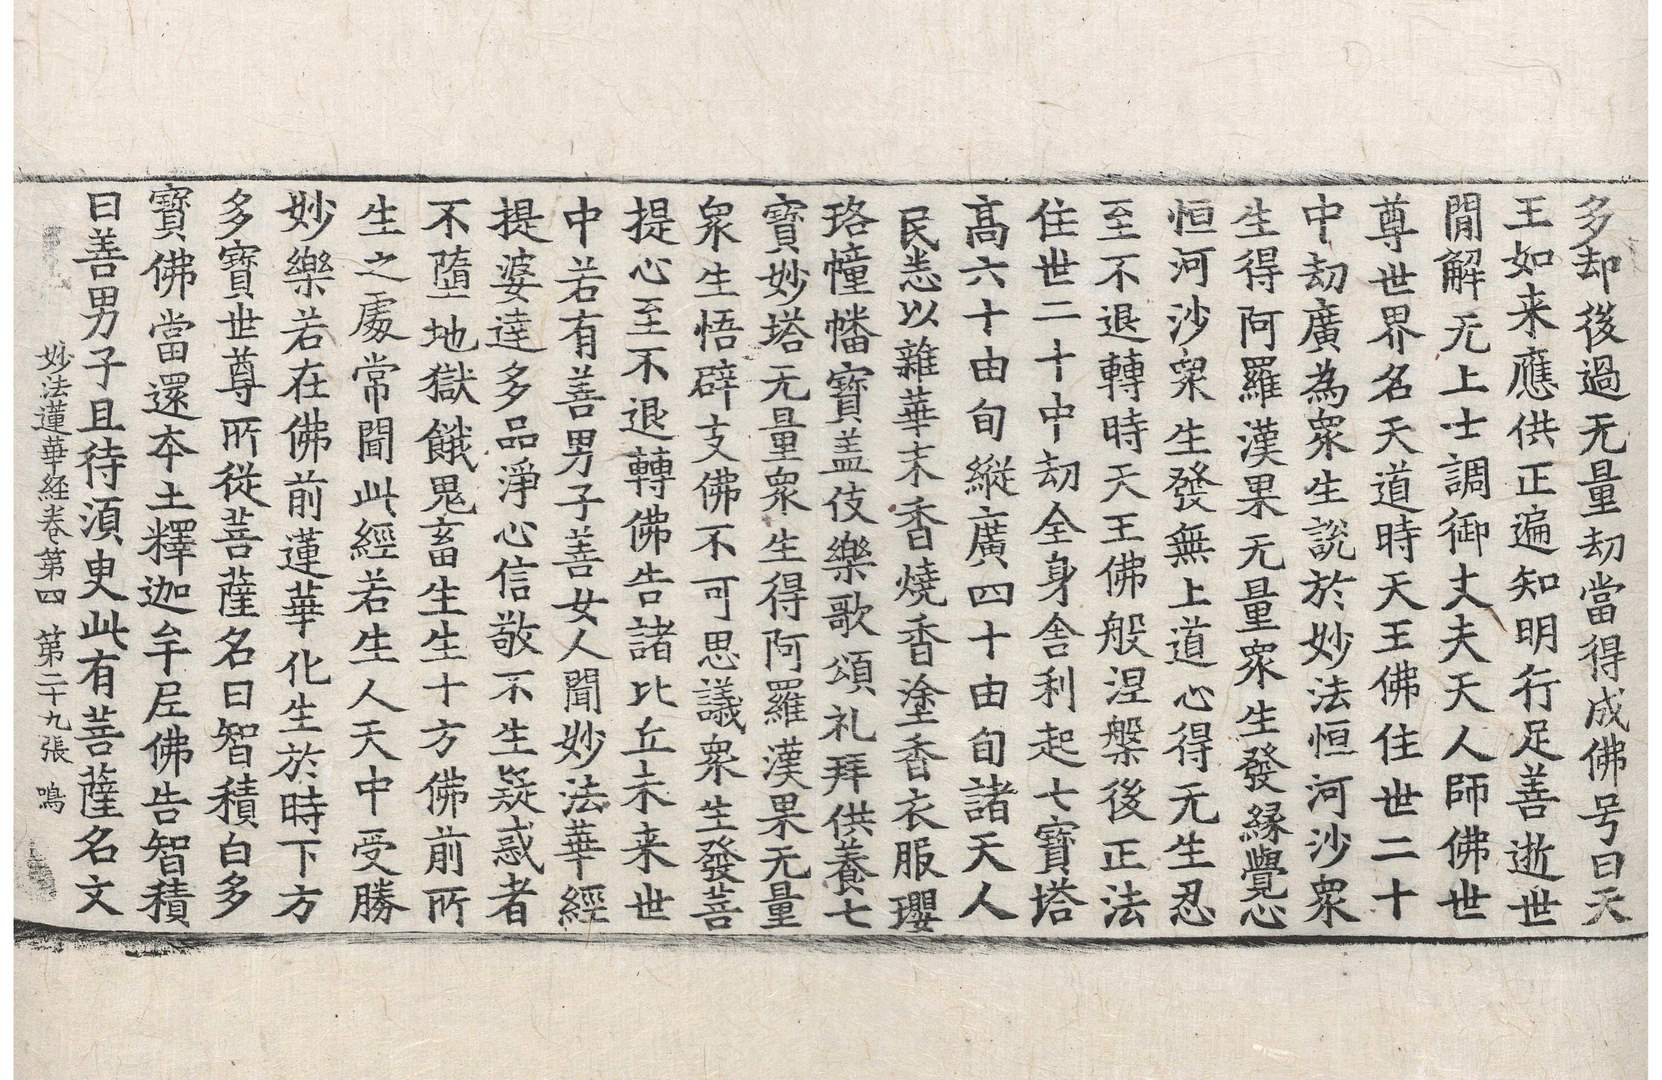 多却後過无量劫當得成佛号曰天
王如来應供正遍知明行足善逝世
間解无上士調御丈夫天人師佛世
尊世界名天道時天王佛住世二十
中劫廣為衆生說於妙法恒河沙衆
生得阿羅漢果无量衆生發縁覺心
恒河沙衆生發無上道心得无生忍
至不退轉時天王佛般涅槃後正法
住世二十中劫全身舍利起七寶塔
髙六十由旬縱廣四十由旬諸天人
民悉以雜華末香燒香塗香衣服瓔
珞幢幡寶盖伎樂歌頌礼拜供養七
寶妙塔无量衆生得阿羅漢果无量
衆生悟辟支佛不可思議衆生發菩
提心至不退轉佛告諸比丘未来世
中若有善男子善女人聞妙法華經
提婆達多品淨心信敬不生疑惑者
不墮地獄餓鬼畜生生十方佛前所
生之處常聞此經若生人天中受勝
妙樂若在佛前蓮華化生於時下方
多寶世尊所從菩薩名曰智積白多
寶佛當還本土釋迦牟尼佛告智積
曰善男子且待湏臾此有菩薩名文
妙法蓮華経卷第四 第二十九張 鳴